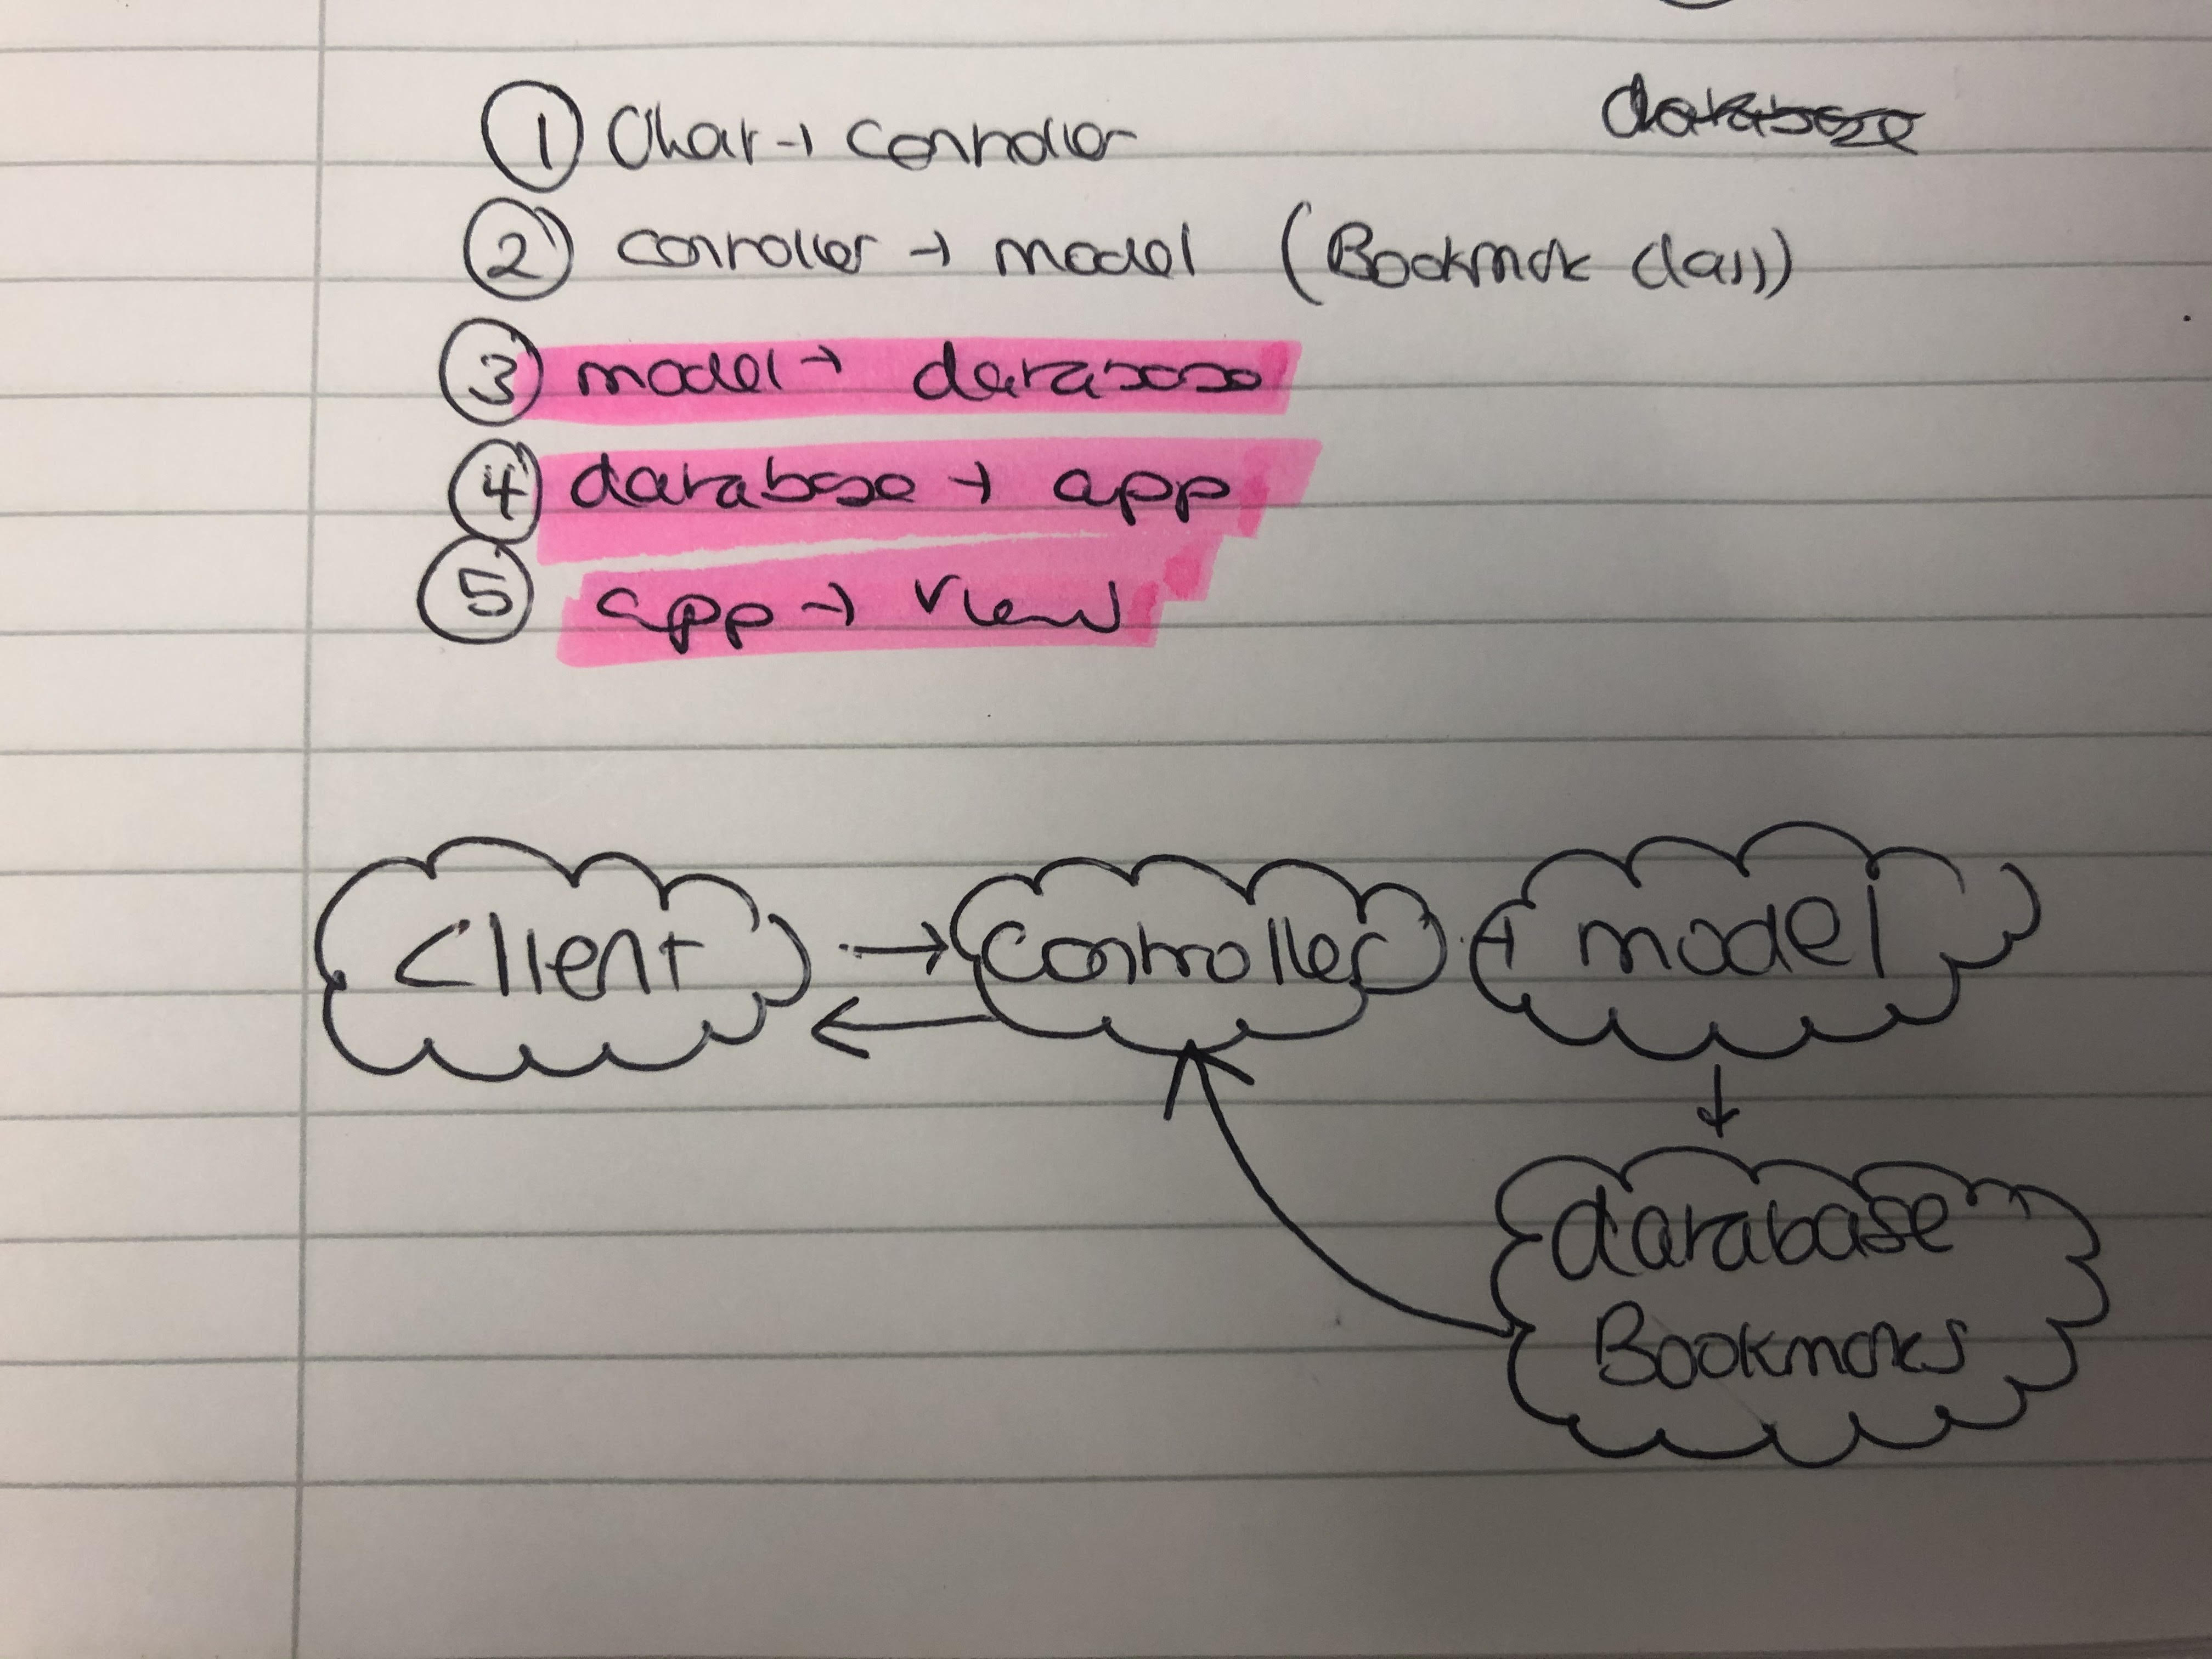 database
① Client → controller
② controller → model (Bookmark class)
③ model → database
④ database → app
⑤ app → view
client → controller → model
database
Bookmarks